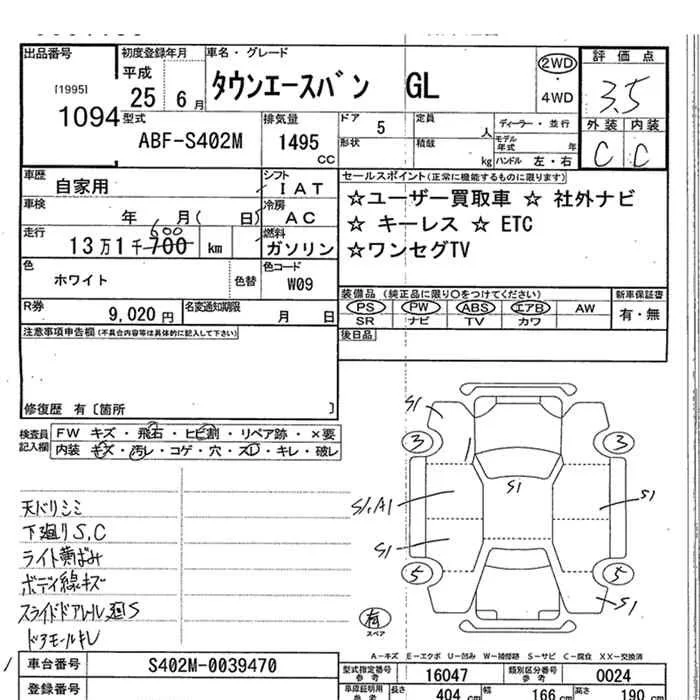 出品番号
[1995]
1094
初度登録年月
平成
25 6月
車名・グレード
タウンエースバン GL
2WD
・
4WD
評価点
3.5
外装 内装
C C
型式
ABF-S402M
排気量
1495
CC
ドア 5
定員 人
形状
積載 kg
ディーラー・並行
モデル年式 年
ハンドル 左・右
車歴
自家用
シフト
IAT
車検
年 月( 日)
冷房
AC
走行
13万1千700 km
600
燃料
ガソリン
色
ホワイト
色替
色コード
W09
R券
9,020円
名変通知期限
月 日
セールスポイント(正常に機能するものに限ります)
☆ユーザー買取車 ☆ 社外ナビ
☆ キーレス ☆ ETC
☆ワンセグTV
装備品 (純正品に限り○をつけてください)
PS PW ABS エアB AW
SR ナビ TV カワ
新車保証書
有・無
後日品
注意事項申告欄(不具合内容等は具体的に記入して下さい)
修復歴 有〔箇所 〕
検査員
記入欄
FW キズ・飛石・ヒビ割・リペア跡・×要
内装 キズ・汚レ・コゲ・穴・スレ・キレ・破レ
天バリシミ
下廻りS,C
ライト黄ばみ
ボディ線キズ
スライドドアレール廻S
ドアモールキレ
S1
3 3
S1
S1,A1 S1
S1
5 5
S1
有
スペア
A-キズ E-エクボ U-凹み W-補修跡 S-サビ C-腐食 XX-交換済
車台番号
S402M-0039470
登録番号
型式指定番号
参考
16047
類別区分番号
参考
0024
車庫証明用
参考
長さ 404 cm 幅 166 cm 高さ 190 cm